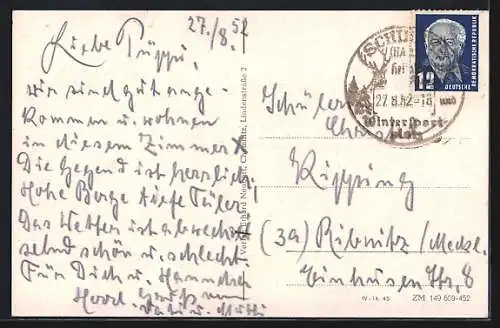 27./8. 52
Liebe Püppi,
wir sind gut ange-
kommen u. wohnen
in diesem Zimmer X
Die Gegend ist herrlich,
Hohe Berge tiefe Täler.
Das Wetter ist abwech-
selnd schön u. schlecht.
Für Dich u. Hannchen
Herzl. Grüße von
Vati u. Mutti
Lindenstraße 2
SCHI
27.8.52-18
Wintersport-
platz
DEUTSCHE
DEMOKRATISCHE REPUBLIK
12
Schülerin
Kipping
(3a) Ribnitz / Meckl.
Str. 8
IV-14-45 ZM 149 609-452